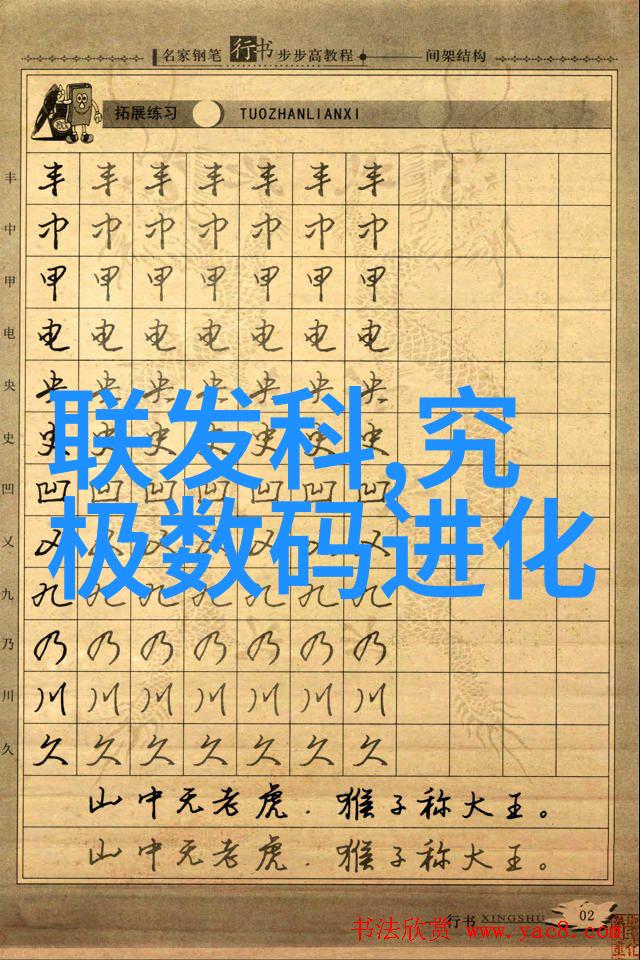 名家钢笔行书步步高教程 间架结构
拓展练习 TUOZHANLIANXI
丰 丰 丰 丰 丰 丰 丰 丰
中 中 中 中 中 中 中 中
甲 甲 甲 甲 甲 甲 甲 甲
电 电 电 电 电 电 电 电
央 央 央 央 央 央 央 央
史 史 史 史 史 史 史 史
联发科,究
凹 凹 凹 凹 凹 凹 凹 凹
极数码进化
乂 乂 乂 乂 乂 乂 乂 乂
九 九 九 九 九 九 九 九
乃 乃 乃 乃 乃 乃 乃 乃
川 川 川 川 川 川 川 川
久 久 久 久 久 久 久 久
山中无老虎.猴子称大王。
山中无老虎.猴子称大王。
行书 XINGSHU 02
书法欣赏 www.yac8.com